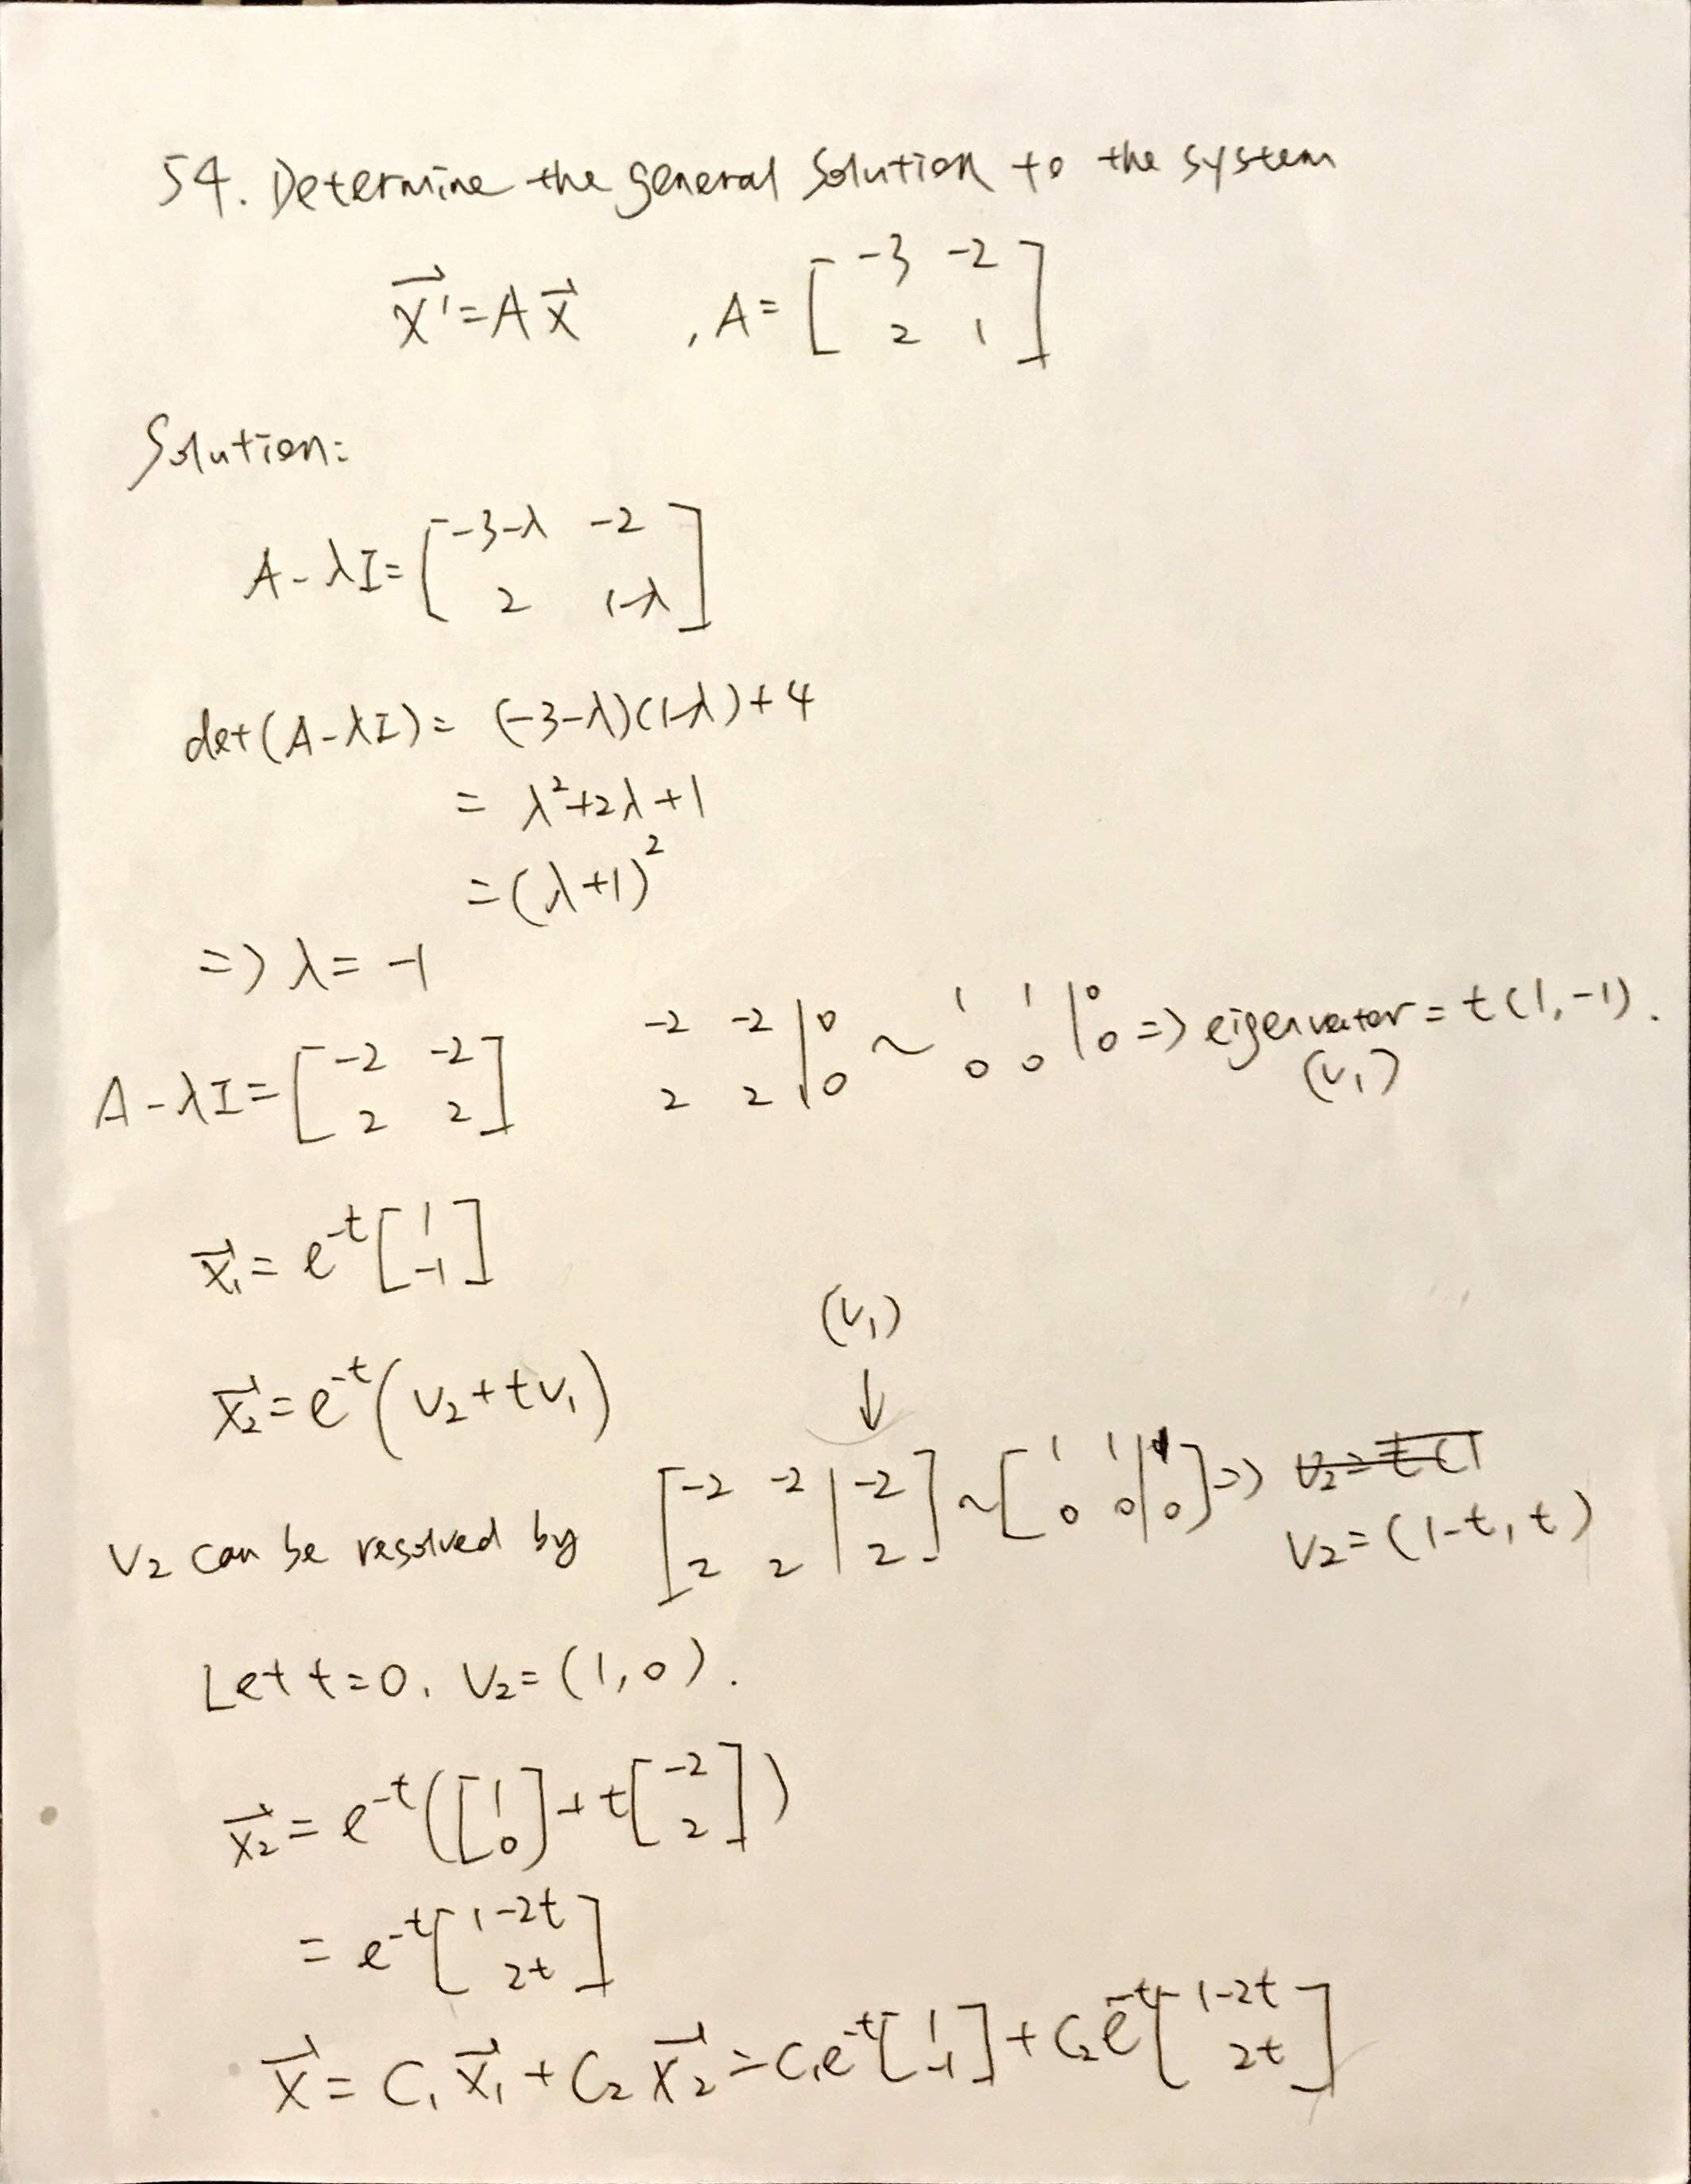 54. Determine the general solution to the system
x⃗' = A x⃗ , A = [ -3 -2
2 1 ]
Solution:
A - λI = [ -3-λ -2
2 1-λ ]
det(A-λI) = (-3-λ)(1-λ)+4
= λ²+2λ+1
= (λ+1)²
=> λ = -1
A - λI = [ -2 -2
2 2 ]
-2 -2 | 0
2 2 | 0 ~ 1 1 | 0
0 0 | 0 => eigenvector = t(1,-1).
(v₁)
x⃗₁ = e^-t [ 1
-1 ]
(v₁)
↓
x⃗₂ = e^-t (v₂ + tv₁)
v₂ can be resolved by [ -2 -2 | -2
2 2 | 2 ] ~ [ 1 1 | 1
0 0 | 0 ] => v₂ = t(1
v₂ = (1-t, t)
Let t=0, v₂ = (1,0).
x⃗₂ = e^-t ( [ 1
0 ] + t [ -2
2 ] )
= e^-t [ 1-2t
2t ]
x⃗ = C₁ x⃗₁ + C₂ x⃗₂ = C₁e^-t [ 1
-1 ] + C₂e^-t [ 1-2t
2t ]